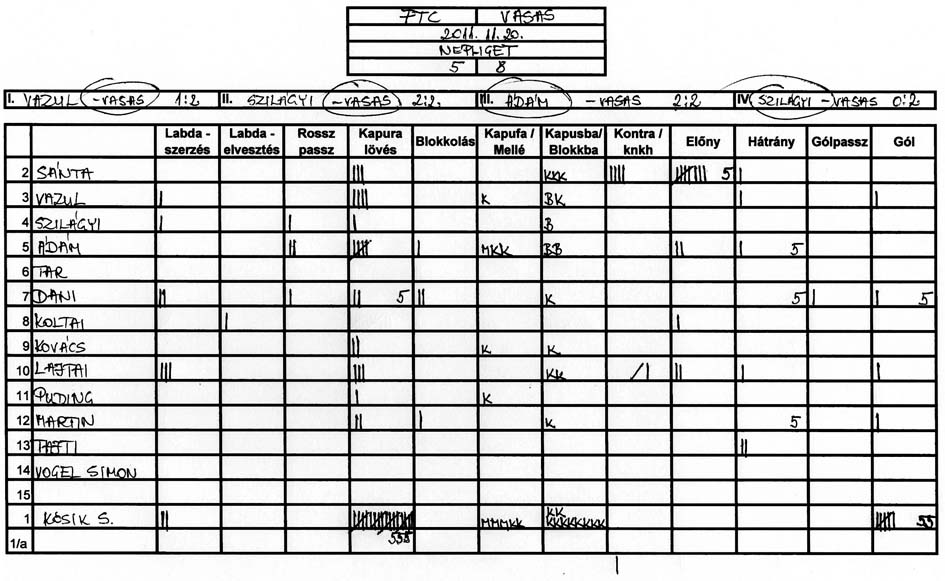 FTC VASAS
2011.11.20.
NÉPLIGET
5 8
I. VAZUL -VASAS 1:2 II. SZILÁGYI -VASAS 2:2. III. ÁDÁM -VASAS 2:2 IV. SZILÁGYI -VASAS 0:2
Labda - szerzés Labda - elvesztés Rossz passz Kapura lövés Blokkolás Kapufa / Mellé Kapusba/ Blokkba Kontra / knkh Előny Hátrány Gólpassz Gól
2 SÁNTA III KKK IIII 5 I
3 VAZUL I IIII K BK I I
4 SZILÁGYI I I I B
5 ÁDÁM II I MKK BB II I 5
6 TAR
7 DANI II I II 5 II K 5 I I 5
8 KOLTAI I I
9 KOVÁCS II K K
10 LAJTAI III III KK /I II I I
11 PUDING I K
12 MARTIN II I K 5 I
13 PAJTI II
14 VOGEL SIMON
15
1 KÓSIK S. II MMMKK KK KKKKKKKK 55
1/a 555